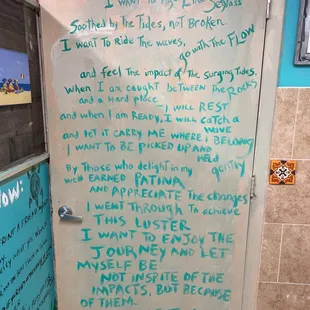 I WANT TO AGE LIKE SEAGLASS
SOOTHED BY THE TIDES, NOT BROKEN.
I WANT TO RIDE THE WAVES,
go with the FLOW
and feel THE IMPACT OF THE SURGING TIDES.
WHEN I AM CAUGHT BETWEEN THE ROCKS
and a HARD place
I WILL REST
and when I am READY, I WILL CATCH a
WAVE
and let it CARRY ME WHERE I BELONG
I WANT TO BE PICKED UP AND
HELD
gently
By THOSE WHO delight in my
well EARNED PATINA
AND APPRECIATE THE CHANGES
I WENT THROUGH TO ACHIEVE
THIS LUSTER
I WANT TO ENJOY THE
JOURNEY AND LET
MYSELF BE
NOT INSPITE OF THE
IMPACTS, BUT BECAUSE
OF THEM.
NOW: